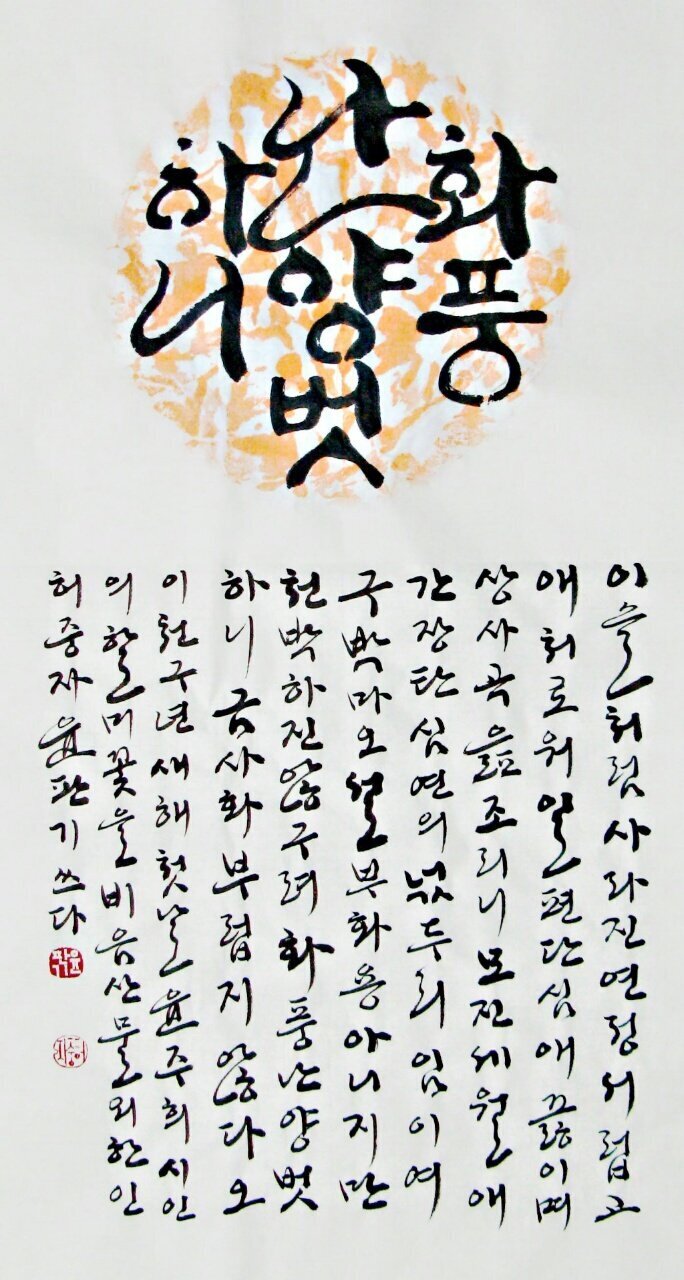 화풍
난양벗
하니
이슬처럼사라진연정서럽고
애처로워일편단심애끓이며
상사곡읊조리니모진세월애
간장단심연의넋두리임이여
구박마오설부화용아니지만
천박하진않구려화풍난양벗
하니금사화부럽지않다오
이천구년새해첫날윤주희시인
의할미꽃을비음산물외한인
허중자윤판기쓰다